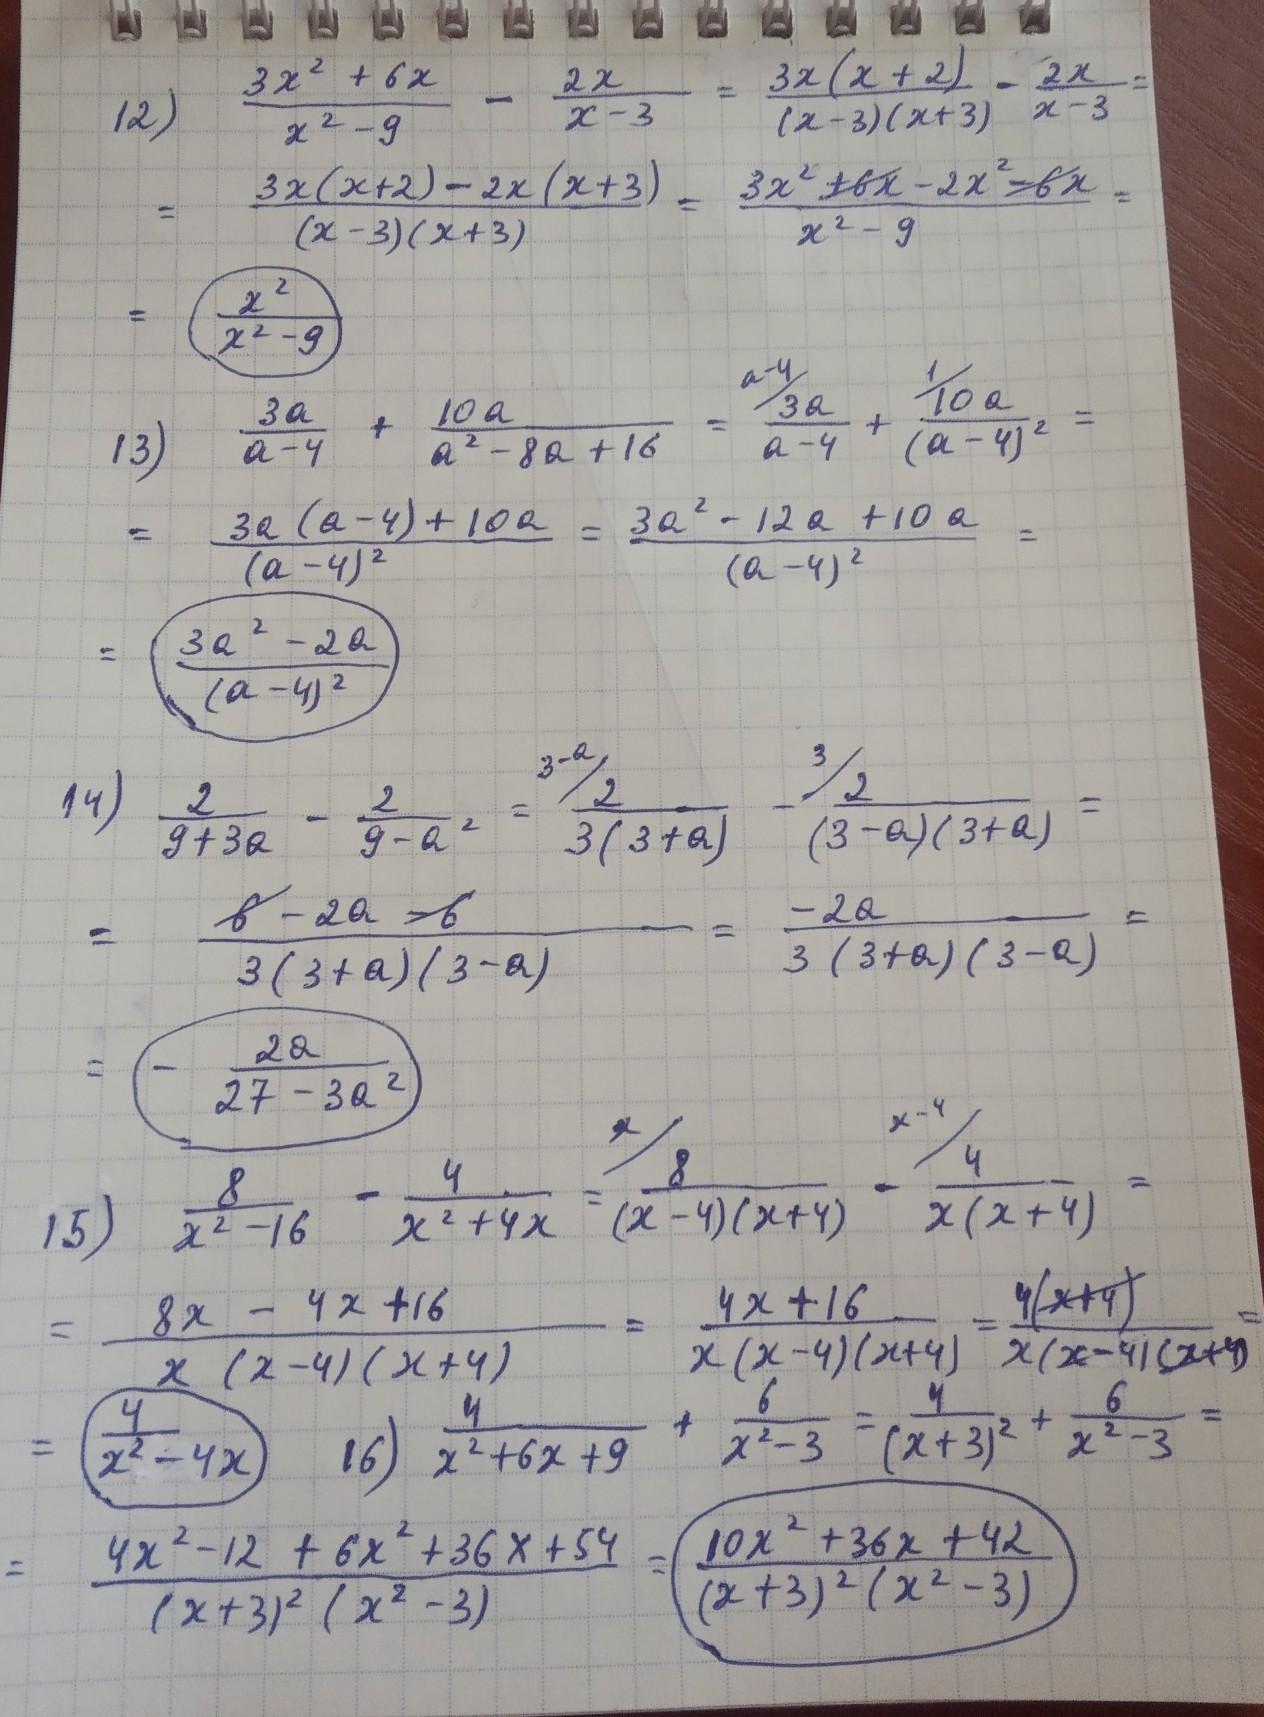 12) (3x² + 6x)/(x² - 9) - 2x/(x - 3) = 3x(x + 2)/((x - 3)(x + 3)) - 2x/(x - 3) =
= (3x(x+2) - 2x(x+3))/((x - 3)(x + 3)) = (3x² + 6x - 2x² - 6x)/(x² - 9) =
= x²/(x² - 9)
13) 3a/(a - 4) + 10a/(a² - 8a + 16) = a-4/ 3a/(a - 4) + 1/ 10a/(a - 4)² =
= (3a(a - 4) + 10a)/(a - 4)² = (3a² - 12a + 10a)/(a - 4)² =
= (3a² - 2a)/(a - 4)²
14) 2/(9 + 3a) - 2/(9 - a²) = 3-a/ 2/(3(3 + a)) - 3/ 2/((3 - a)(3 + a)) =
= (6 - 2a - 6)/(3(3 + a)(3 - a)) = -2a/(3(3 + a)(3 - a)) =
= - 2a/(27 - 3a²)
15) 8/(x² - 16) - 4/(x² + 4x) = x/ 8/((x - 4)(x + 4)) - x-4/ 4/(x(x + 4)) =
= (8x - 4x + 16)/(x(x - 4)(x + 4)) = (4x + 16)/(x(x - 4)(x + 4)) = 4(x + 4)/(x(x - 4)(x + 4)) =
= 4/(x² - 4x) 16) 4/(x² + 6x + 9) + 6/(x² - 3) = 4/(x + 3)² + 6/(x² - 3) =
= (4x² - 12 + 6x² + 36x + 54)/((x + 3)²(x² - 3)) = (10x² + 36x + 42)/((x + 3)²(x² - 3))